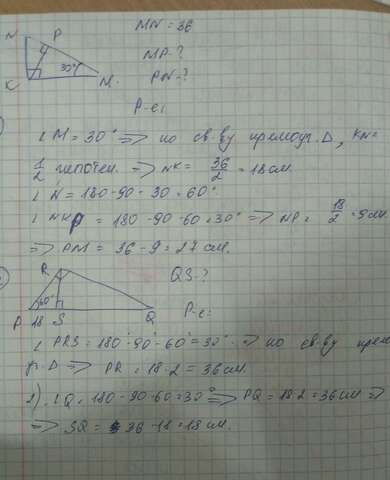 MN = 36
N P
MP - ?
30°
K M
PN - ?
Р-е:
∠ M = 30° => по св. ву прямоуг. Δ, KN =
1/2 гипотен. => NK = 36/2 = 18 см.
∠ N = 180 - 90 - 30 = 60°.
∠ NKP = 180 - 90 - 60 = 30° => NP = 18/2 = 9 см.
=> PM = 36 - 9 = 27 см.
R QS - ?
60°
P 18 S Q Р-е:
∠ PRS = 180° - 90° - 60° = 30° => по св. ву прям
уг. Δ => PR = 18 · 2 = 36 см.
2) ∠ Q = 180 - 90 - 60 = 30° => PQ = 18 · 2 = 36 см =>
=> SQ = 36 - 18 = 18 см.